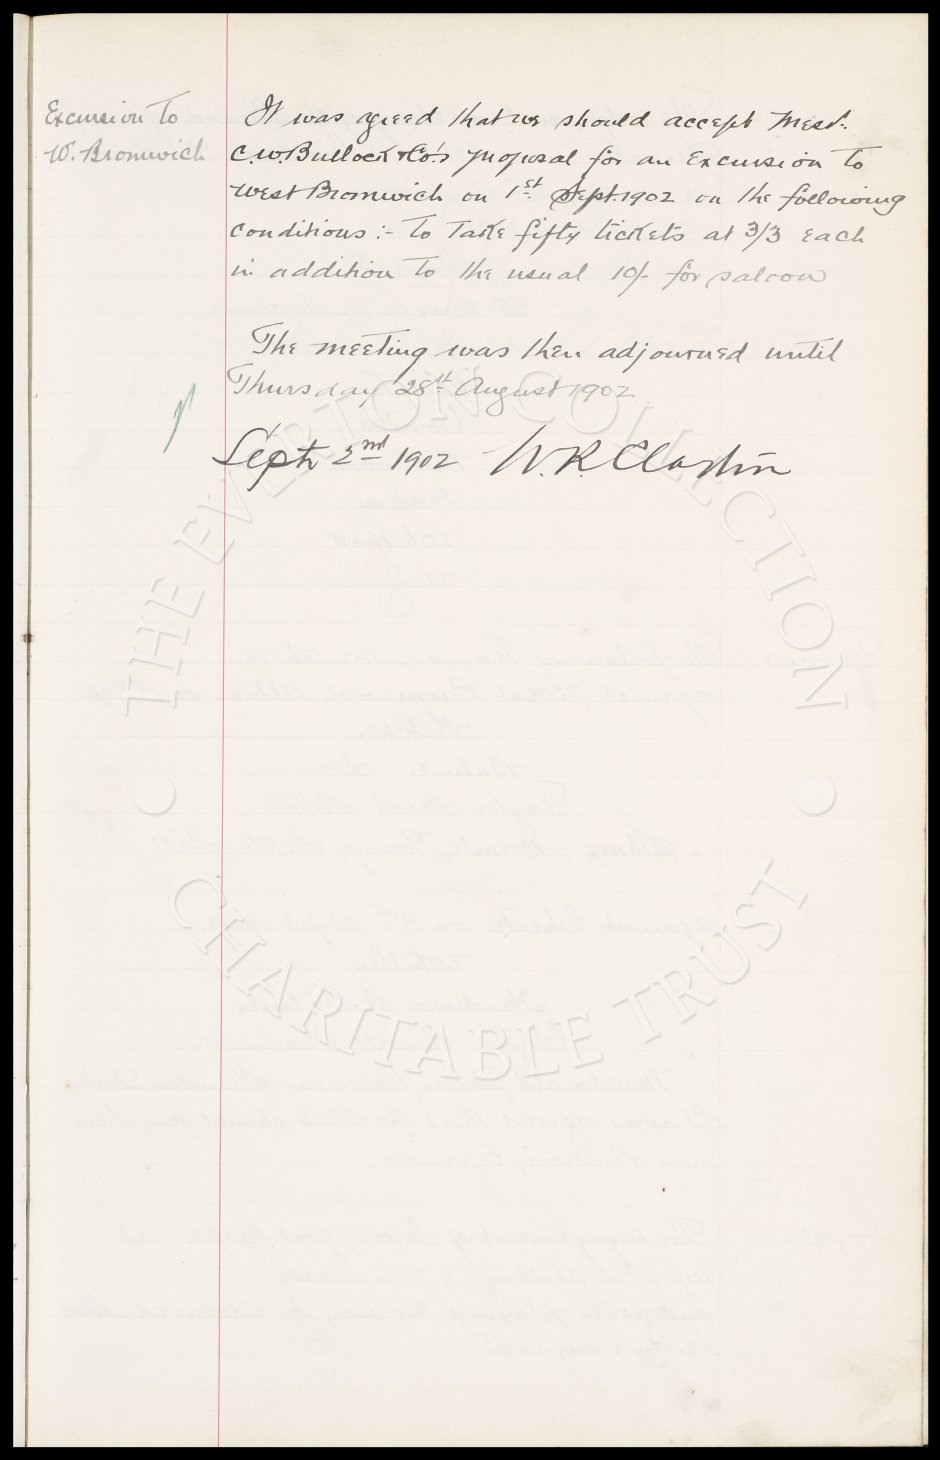 Excursion to
W. Bromwich
It was agreed that we should accept Messrs.
C.W. Bullock & Co's proposal for an Excursion to
West Bromwich on 1st Sept. 1902 on the following
conditions :- To take fifty tickets at 3/3 each
in addition to the usual 10/- for saloon
The meeting was then adjourned until
Thursday 28th August 1902.
Septr 2nd 1902 W.R. Clayton
THE EVERTON COLLECTION
CHARITABLE TRUST